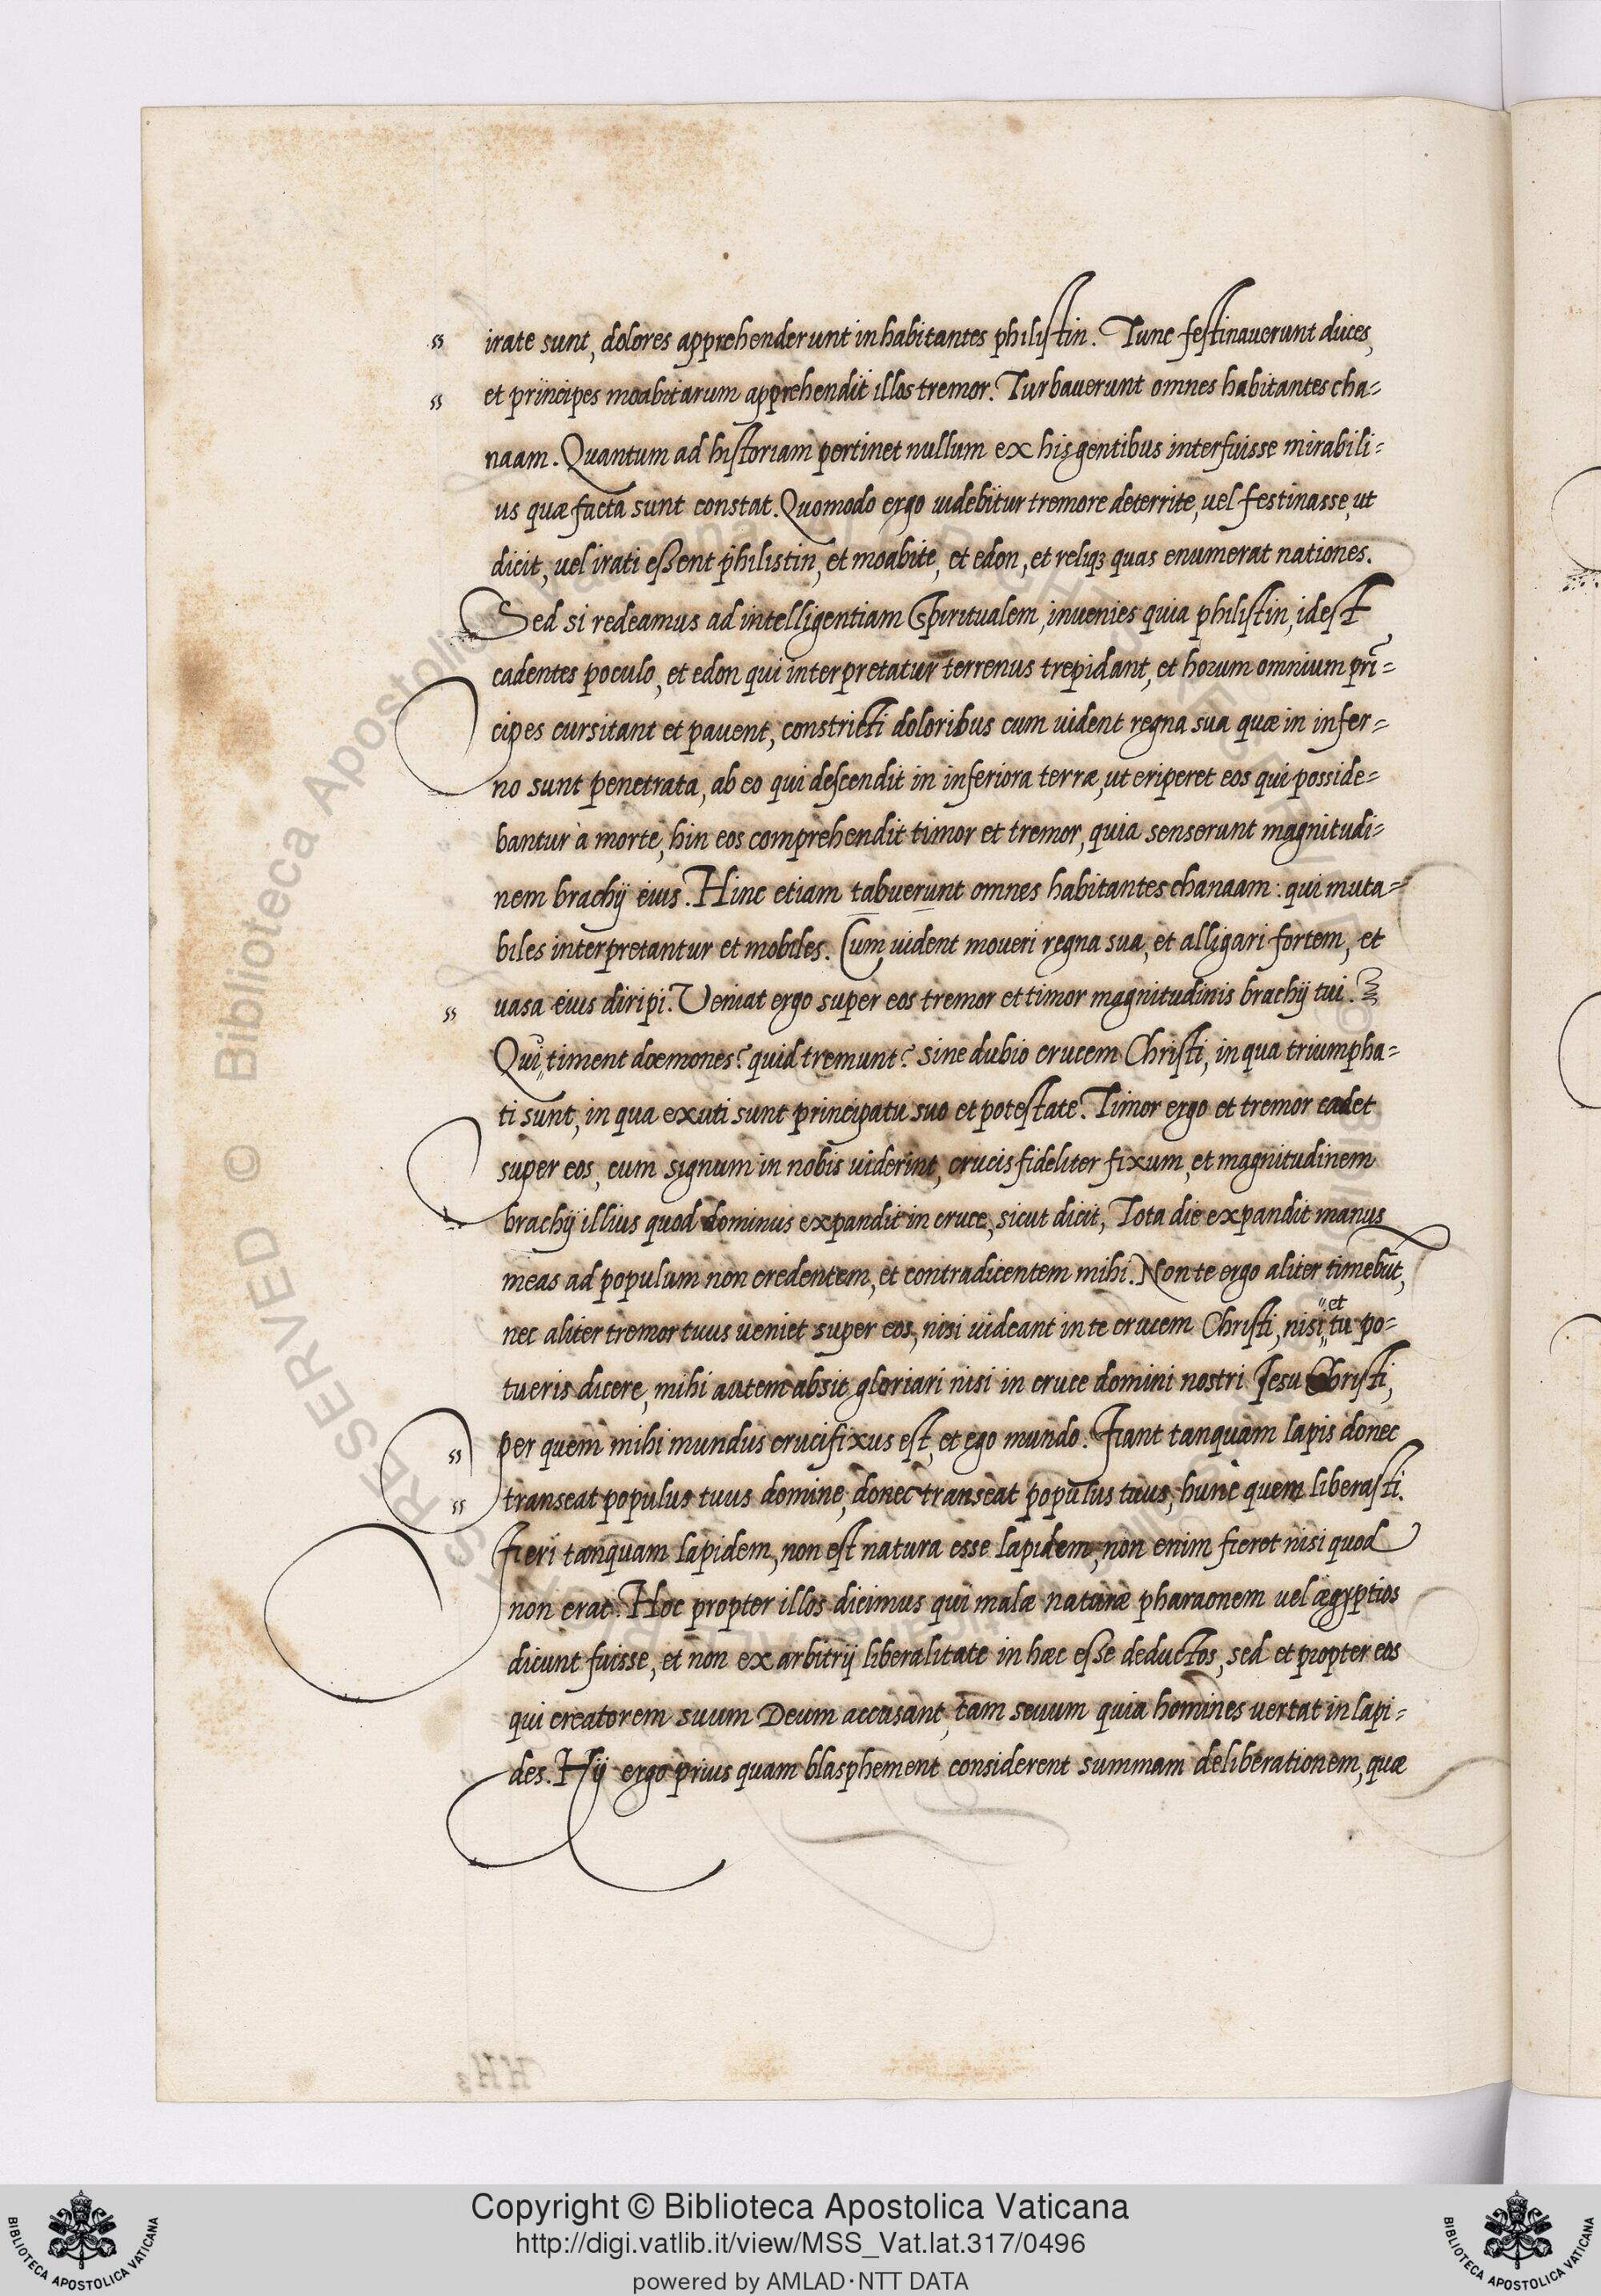 irate sunt, dolores apprehenderunt inhabitantes philistin. Tunc festinauerunt duces,
et principes moabitarum apprehendit illos tremor. Turbauerunt omnes habitantes cha=
naam. Quantum ad historiam pertinet nullum ex his gentibus interfuisse mirabili=
us quæ facta sunt constat. Quomodo ergo uidebitur tremore deterrite, uel festinasse, ut
dicit, uel irati essent philistin, et moabite, et edon, et reliqꝫ quas enumerat nationes.
Sed si redeamus ad intelligentiam Spiritualem, inuenies quia philistin, idest
cadentes poculo, et edon qui interpretatur terrenus trepidant, et horum omnium pri̅=
cipes cursitant et pauent, constricti doloribus cum uident regna sua quæ in infer=
no sunt penetrata, ab eo qui descendit in inferiora terræ, ut eriperet eos qui posside=
bantur à morte, hin eos comprehendit timor et tremor, quia senserunt magnitudi=
nem brachij eius. Hinc etiam tabuerunt omnes habitantes chanaam: qui muta=
biles interpretantur et mobiles. Cum uident moueri regna sua, et alligari fortem, et
uasa eius diripi. Ueniat ergo super eos tremor et timor magnitudinis brachij tui.
Qui timent dœmones? quid tremunt? Sine dubio crucem Christi, in qua triumpha=
ti sunt, in qua exuti sunt principatu suo et potestate. Timor ergo et tremor cadet
super eos, cum signum in nobis uiderint, crucis fideliter fixum, et magnitudinem
brachij illius quod dominus expandit in cruce, sicut dicit, Tota die expandit manus
meas ad populum non credentem, et contradicentem mihi. Non te ergo aliter timebūt,
nec aliter tremor tuus ueniet super eos, nisi uideant in te crucem Christi, nisi et tu po=
tueris dicere, mihi autem absit gloriari nisi in cruce domini nostri Jesu Christi,
per quem mihi mundus crucifixus est, et ego mundo. Fiant tanquam lapis donec
transeat populus tuus domine, donec transeat populus tuus, hunc quem liberasti.
Fieri tanquam lapidem, non est natura esse lapidem, non enim fieret nisi quod
non erat. Hoc propter illos dicimus qui malæ naturæ pharaonem uel ægyptios
dicunt fuisse, et non ex arbitrij liberalitate in hæc esse deductos, sed et propter eos
qui creatorem suum Deum accusant, tam seuum quia homines uertat in lapi=
des. Hij ergo prius quam blasphement considerent summam deliberationem, quæ
Copyright © Biblioteca Apostolica Vaticana
http://digi.vatlib.it/view/MSS_Vat.lat.317/0496
powered by AMLAD·NTT DATA
BIBLIOTECA APOSTOLICA VATICANA
BIBLIOTECA APOSTOLICA VATICANA